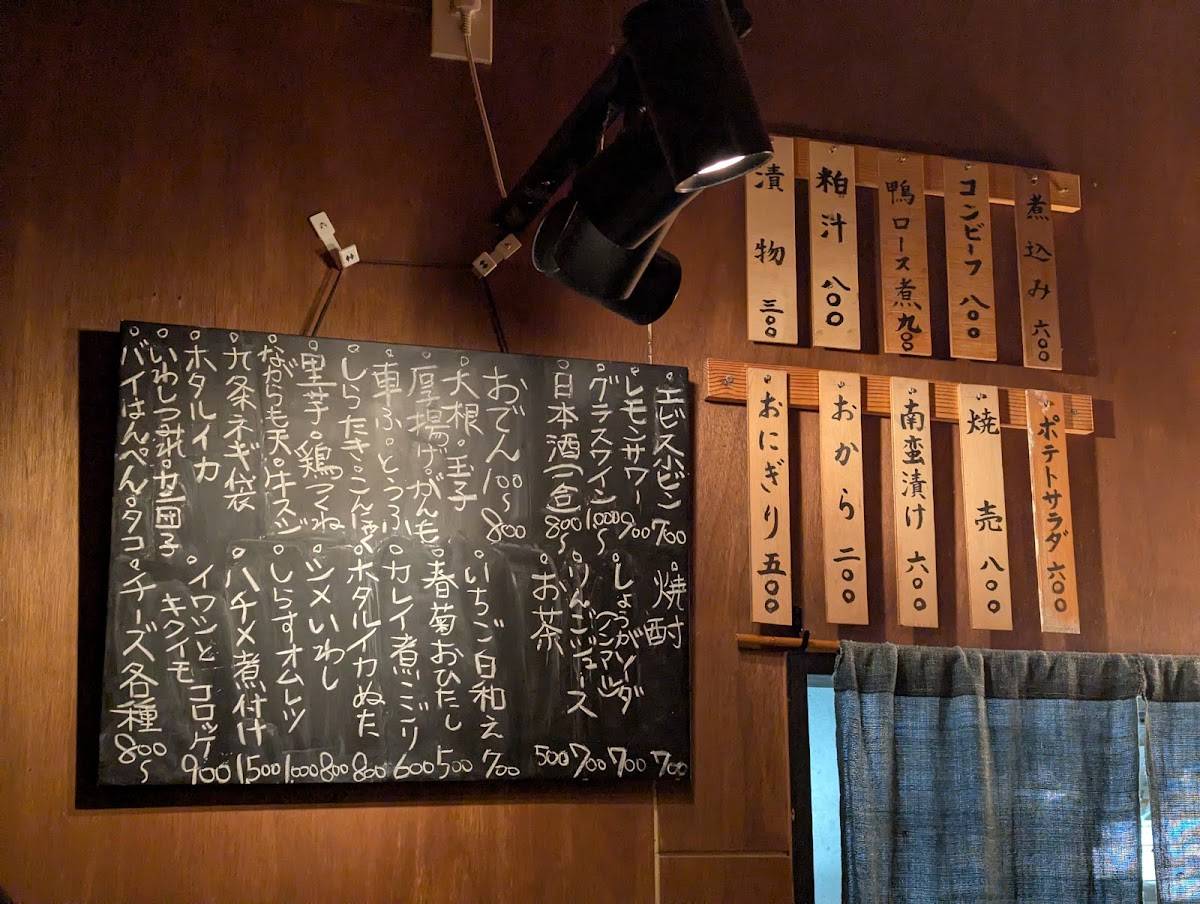 煮込み 六〇〇
コンビーフ 八〇〇
鴨ロース煮 九〇〇
粕汁 八〇〇
漬物 三〇〇
ポテトサラダ 六〇〇
焼売 八〇〇
南蛮漬け 六〇〇
おから 二〇〇
おにぎり 五〇〇
エビス小ビン 700
レモンサワー 900
グラスワイン 1000〜
日本酒(一合) 800〜
焼酎 700
しょうがソーダ (ノンアル) 700
りんごジュース 700
お茶 500
おでん 100〜800
大根・玉子
厚揚げ・がんも
車ふ・とうふ
しらたき・こんにゃく
里芋・鶏つくね
ながらも天・牛スジ
九条ネギ袋
ホタルイカ
いわしつみれ・カニ団子
バイ・はんぺん・タコ
いちご白和え 700
春菊おひたし 500
カレイ煮こごり 600
ホタルイカぬた 800
シメいわし 800
しらすオムレツ 1000
ハチメ煮付け 1500
イワシとキクイモコロッケ 900
チーズ各種 800〜